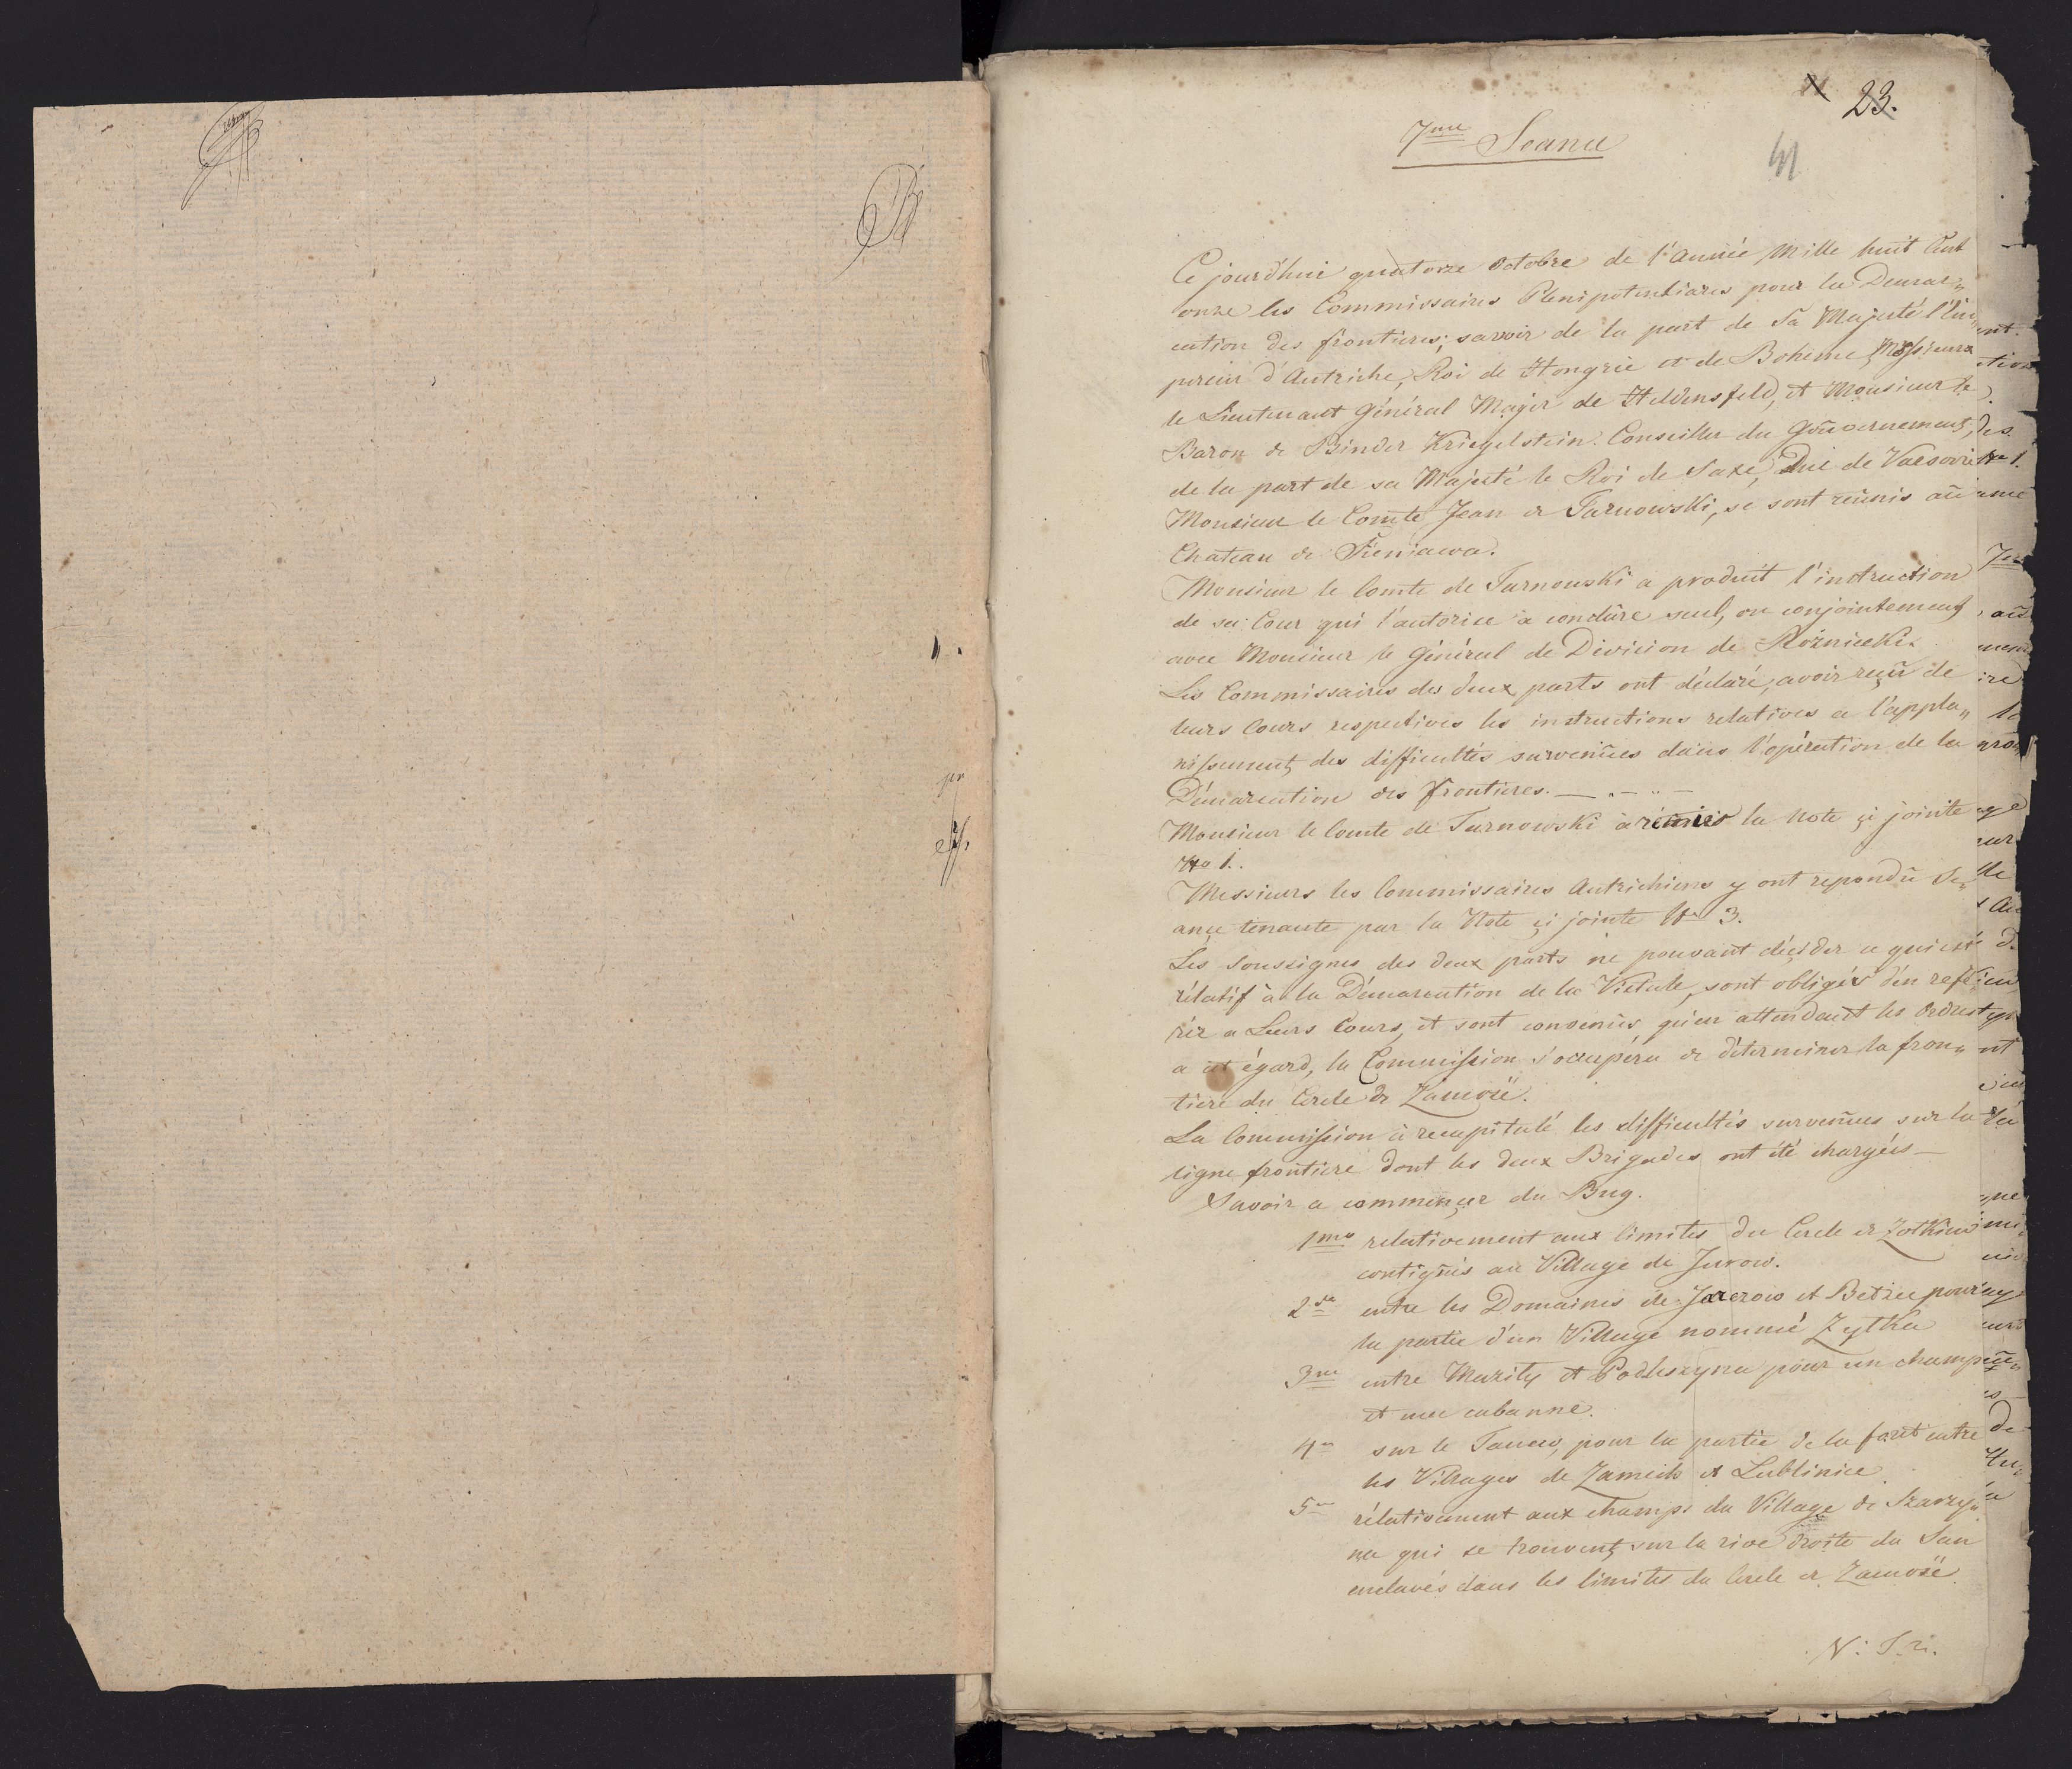 23.
7me Seance
41
Ce jourdhui quatorze Octobre de l'année Mille huit Cent
onze les Commissaires Plenipotentiaires pour la Demar„
cation des frontieres; savoir de la part de Sa Majesté l'Em„
pereur d'Autriche, Roi de Hongrie et de Bohême, Messieurs
le Lieutenant Général Major de Heldensfeld, et Monsieur le
Baron de Binder Kriegelstein. Conseiller du Gouvernement,
de la part de sa Majesté le Roi de Saxe, Duc de Varsovie
Monsieur le Comte Jean de Tarnowski, se sont reûnis aû
Chateau de Sieniawa.
Monsieur le Comte de Tarnowski a produit l'instruction
de sa Cour qui l'autorise à conclûre seul, ou conjointement
avec Monsieur le Général de Division de Rożniecki.
Les Commissaires des deux parts ont déclaré, avoir reçû de
leurs Cours respectives les instructions relatives a l'appla„
nissement des difficultés survenûes dans l'opération de la
Démarcation des frontieres.
Monsieur le Comte de Tarnowski à remis la Note çi jointe
No 1.
Messieurs les Commissaires Autrichiens y ont repondû Se„
ançe tenante par la Note çi jointe No 3.
Les Soussignes des deux parts ne pouvant déçider ce qui est
rélatif à la Démarcation de la Vistule, sont obligés d'en refé
rér a Leurs Cours, et sont convenûs, qu'en attendant les Ordres
a cet égard, la Commission s'occupéra de déterminer la fron„
tiere du Cercle de Zamość.
La Commission à recapitulé les difficultés survenues sur la
ligne frontiere dont les deux Brigades ont été chargées
Savoir a commençer du Bug.
1mo relativement aux limites du Cercle de Zolkiew
contigûes au Village de Jurow.
2do entre les Domaines de Jarczow et Betzec pour
la partie d'un Village nommé Zytka
3me entre Mazily et Podleszyna pour un champ
et une cabanne.
4o sur le Tanew, pour la partie de la forêt entre
les Villages de Zamech et Lublinice
5o rélativement aux champs du Village de Szarzy„
na qui se trouvent sur la rive droite du San
enclavés dans les limites du Cercle de Zamość